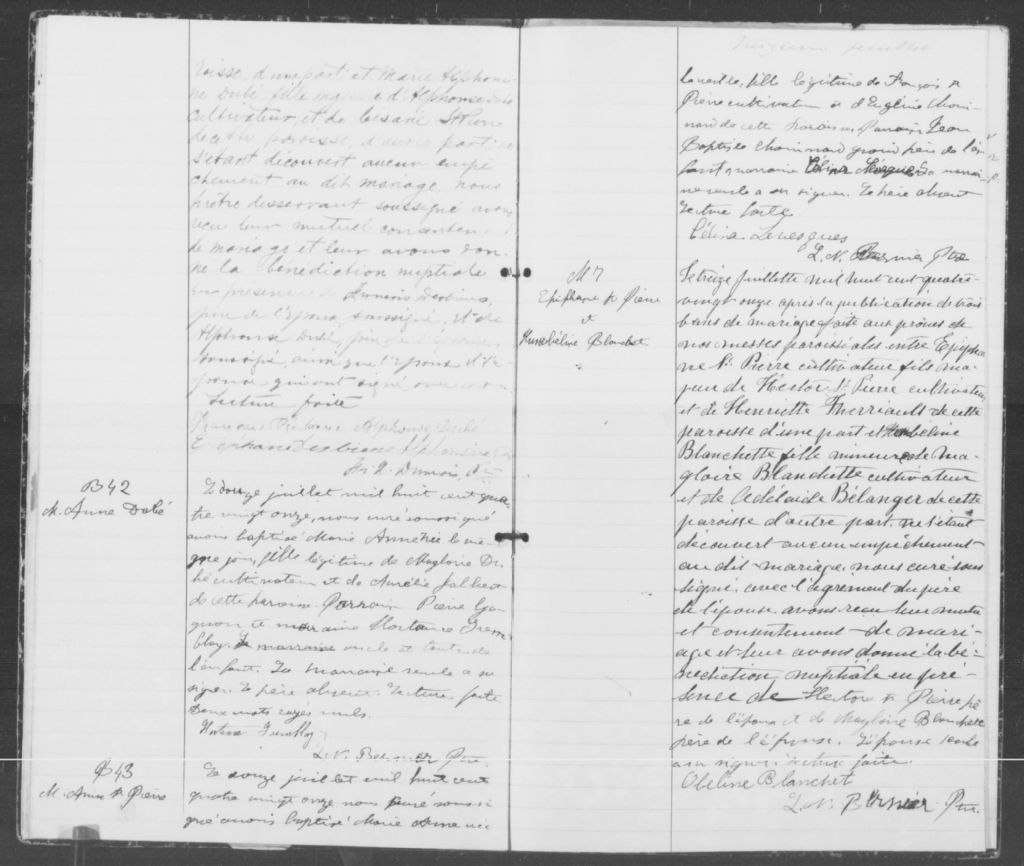 roisse, d'une part et Marie Alphonsi-
ne Dubé, fille mineure d'Alphonse Dubé
cultivateur, et de Césarie St Pierre
de cette paroisse, d'autre part; ne
s'étant découvert aucun empê
chement au dit mariage, nous
prêtre desservant soussigné avons
reçu leur mutuel consentement
de mariage et leur avons don-
né la bénédiction nuptiale
en présence de
père de l'époux, soussigné, et de
Alphonse Dubé, père de l'épouse
soussigné, ainsi que l'époux et l'é-
pouse qui ont signé avec nous
Lecture faite
Alphonse Dubé
B42
M. Anna Dubé
Le douze juillet mil huit cent qua-
tre vingt onze, nous curé soussigné
avons baptisé Marie Anna née le mê-
me jour, fille légitime de Magloire Du-
bé cultivateur et de Aurélie Jalbert
de cette paroisse. Parrain Pierre Ga-
gnon et marraine Hortance Trem
blay La marraine oncle et tante de
l'enfant. La marraine seule a su
signer. Le père absent. Lecture faite
Deux mots rayés nuls.
L. N. Bernier Ptre.
B43
M. Anna St Pierre
Le douze juillet mil huit cent
quatre vingt onze nous curé soussi
gné avons baptisé Marie Anna née
M 7
Epiphane St Pierre
et
Blanchet
treizième feuillet
la veille, fille légitime de François St
Pierre cultivateur et d'Eugénie Choui-
nard de cette paroisse. Parrain Jean
Baptiste Chouinard grand père de l'en
fant marraine Célina Lévesque La marrai-
ne seule a su signer. Le père absent
Lecture faite
Célina Levesques
L. N. Bernier Ptre
Le treize juillette mil huit cent quatre-
vingt onze après la publication de trois
bans de mariage faite aux prônes de
nos messes paroissiales entre Epipha
ne St Pierre cultivateur fils ma-
jeur de Hector St Pierre cultivateur
et de Henriette Therriault de cette
paroisse d'une part et
Blanchette fille mineure de Ma-
gloire Blanchette cultivateur
et de Adélaide Bélanger de cette
paroisse d'autre part, ne s'étant
découvert aucun empêchement
au dit mariage, nous curé sous
signé, avec l'agrément du père
de l'épouse, avons reçu leur mutu
el consentement de mari-
age et leur avons donné la bé-
nédiction nuptiale en pré-
sence de Hector St Pierre pè
re de l'époux et de Magloire Blanchette
père de l'épouse. L'épouse seule
a su signer. Lecture faite.
Obéline Blanchet
L. N. Bernier Ptre.